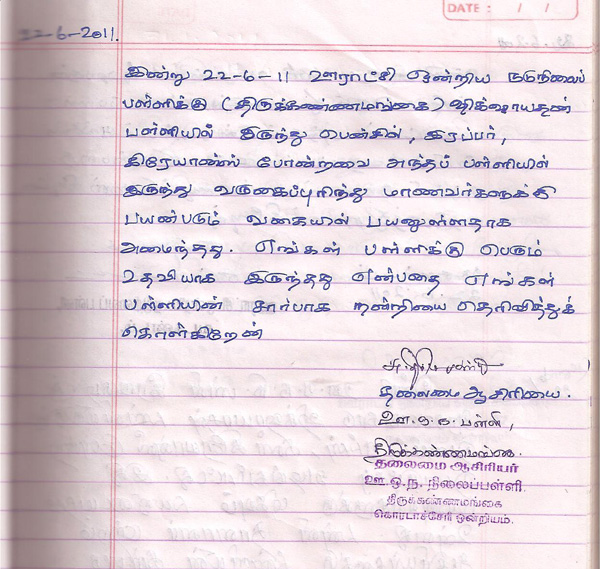 DATE : / /
22-6-2011.
இன்று 22-6-11 ஊராட்சி ஒன்றிய நடுநிலைப்
பள்ளிக்கு (திருக்கண்ணமங்கை)
பள்ளியில் இருந்து பென்சில், இரப்பர்,
கிரேயான்ஸ் போன்றவை அந்தப் பள்ளியில்
இருந்து வருகைப்புரிந்து மாணவர்களுக்கு
பயன்படும் வகையால் பயனுள்ளதாக
அமைந்தது. எங்கள் பள்ளிக்கு பெரும்
உதவியாக இருந்தது என்பதை எங்கள்
பள்ளியின் சார்பாக நன்றியை தெரிவித்துக்
கொள்கிறேன்
தலைமை ஆசிரியை.
ஊ.ஒ.ந. பள்ளி,
திருக்கண்ணமங்கை.
தலைமை ஆசிரியர்
ஊ.ஒ.ந. நிலைப்பள்ளி
திருக்கண்ணமங்கை
கொரடாச்சேரி ஒன்றியம்.